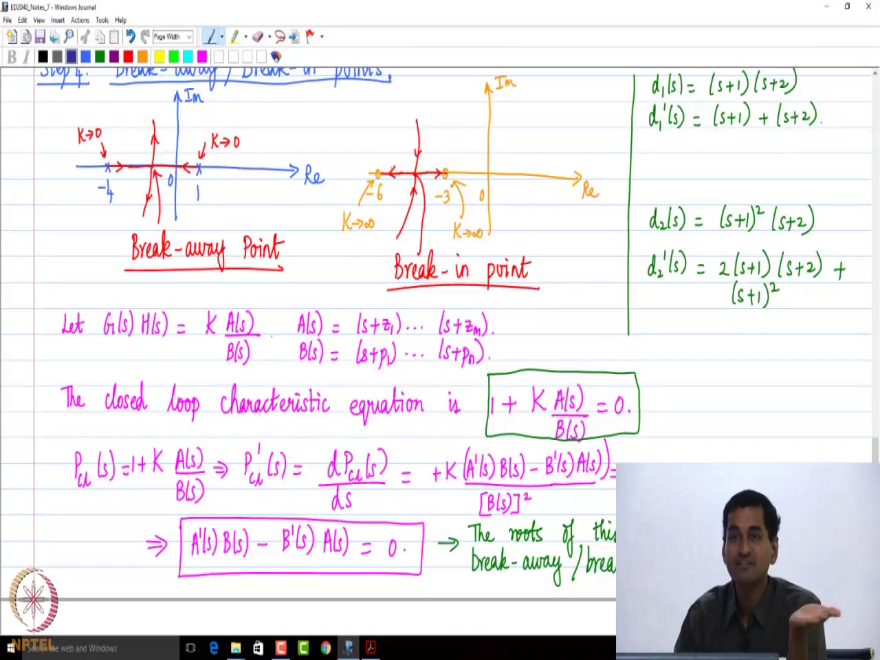 ED2040_Notes_7 - Windows Journal
File Edit View Insert Actions Tools Help
Page Width
B I
Step 4: Break-away / Break-in points.
Im
K→0
K→0
-4
0
1
Re
Break-away Point
Im
-6
-3
0
Re
K→∞
K→∞
Break-in point
d₁(s) = (s+1)(s+2)
d₁'(s) = (s+1) + (s+2).
d₂(s) = (s+1)² (s+2)
d₂'(s) = 2(s+1)(s+2) +
(s+1)²
Let G(s) H(s) = K A(s)/B(s). A(s) = (s+z₁) ... (s+zₘ).
B(s) = (s+p₁) ... (s+pₙ).
The closed loop characteristic equation is 1 + K A(s)/B(s) = 0.
P_cl(s) = 1 + K A(s)/B(s) ⇒ P_cl'(s) = dP_cl(s)/ds = +K (A'(s) B(s) - B'(s) A(s))/[B(s)]² =
⇒ A'(s) B(s) - B'(s) A(s) = 0. → The roots of this
break-away / brea
NPTEL
Search the web and Windows